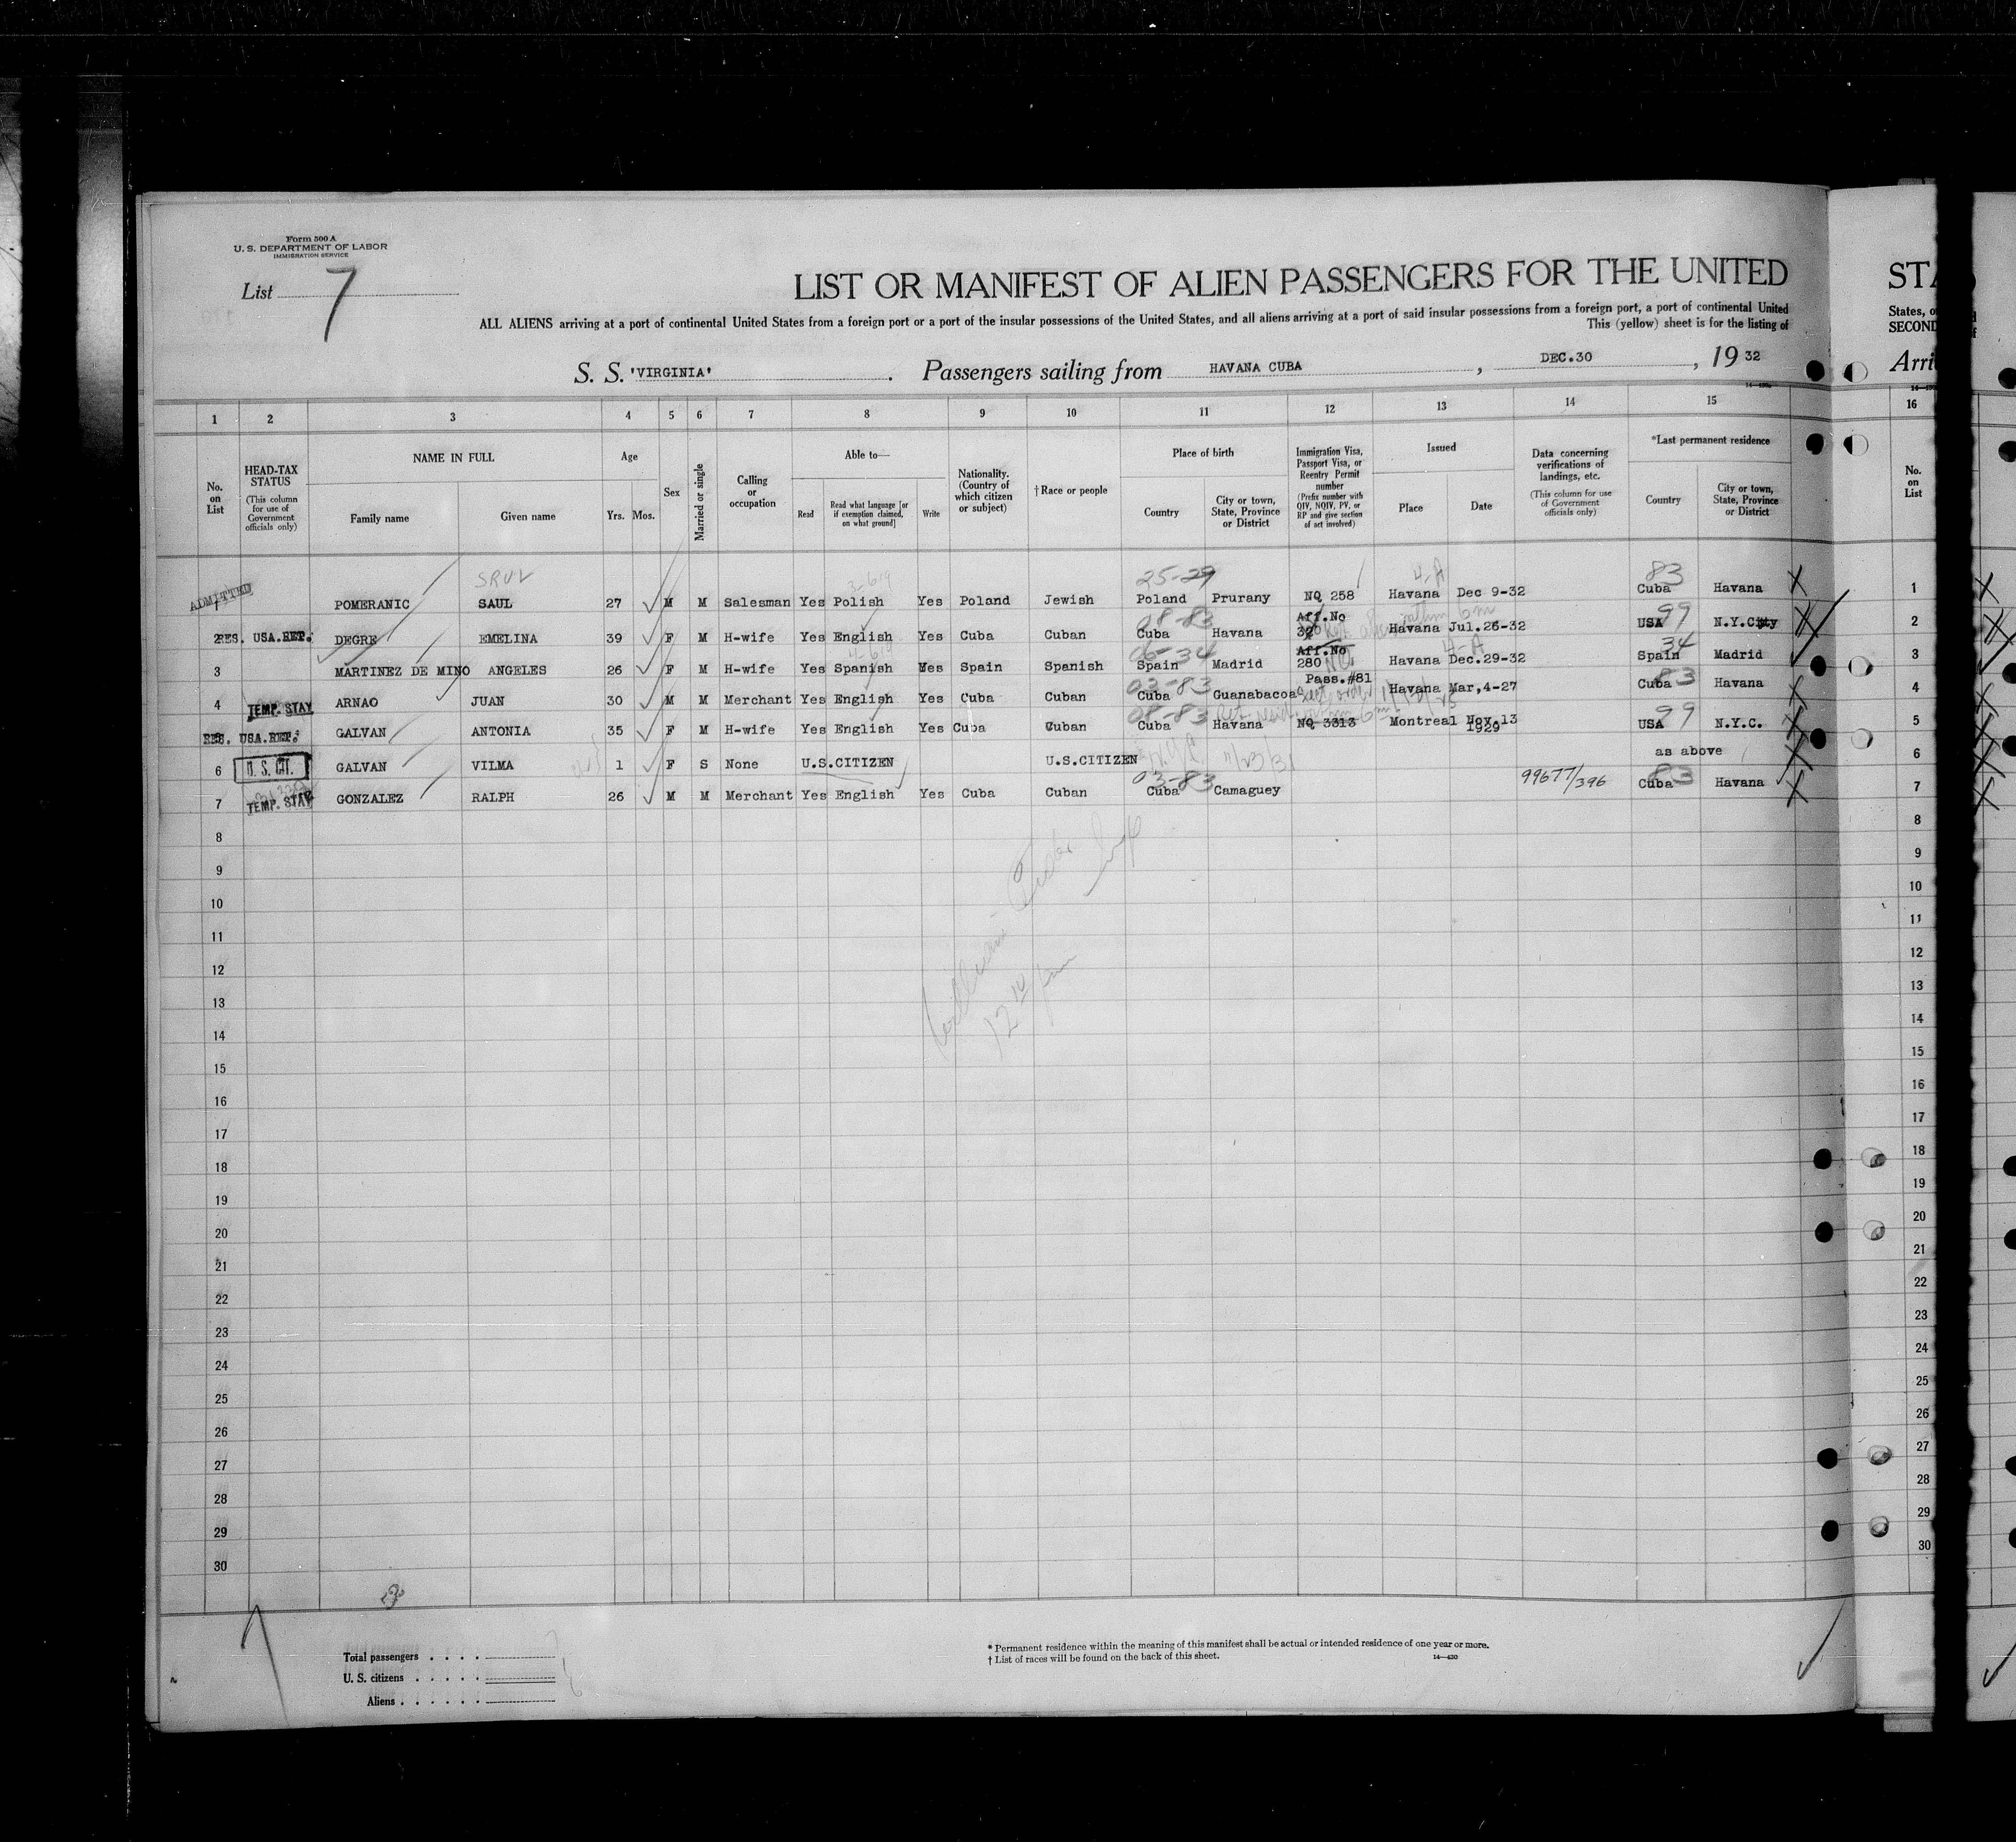 Form 500 A
U. S. DEPARTMENT OF LABOR
IMMIGRATION SERVICE
List 7
LIST OR MANIFEST OF ALIEN PASSENGERS FOR THE UNITED
ALL ALIENS arriving at a port of continental United States from a foreign port or a port of the insular possessions of the United States, and all aliens arriving at a port of said insular possessions from a foreign port, a port of continental United
This (yellow) sheet is for the listing of
S. S. 'VIRGINIA' . Passengers sailing from HAVANA CUBA , DEC.30 , 19 32
STA
States, o
SECOND
Arri
1 2 3 4 5 6 7 8 9 10 11 12 13 14 15 16
No. on List
HEAD-TAX STATUS (This column for use of Government officials only)
NAME IN FULL
Family name Given name
Age
Yrs. Mos.
Sex
Married or single
Calling or occupation
Able to—
Read Read what language [or if exemption claimed, on what ground] Write
Nationality. (Country of which citizen or subject)
†Race or people
Place of birth
Country City or town, State, Province or District
Immigration Visa, Passport Visa, or Reentry Permit number (Prefix number with QIV, NQIV, PV, or RP and give section of act involved)
Issued
Place Date
Data concerning verifications of landings, etc. (This column for use of Government officials only)
*Last permanent residence
Country City or town, State, Province or District
No. on List
SRUL 3-619 25-29 4-A 83
ADMITTED 1 POMERANIC SAUL 27 M M Salesman Yes Polish Yes Poland Jewish Poland Prurany NQ 258 Havana Dec 9-32 Cuba Havana 1
08-83 99
2 RES. USA.RET. DEGRE EMELINA 39 F M H-wife Yes English Yes Cuba Cuban Cuba Havana Aff.No 320 Havana Jul.26-32 USA N.Y.City 2
4-619 06-34 4-A 34
3 MARTINEZ DE MINO ANGELES 26 F M H-wife Yes Spanish Yes Spain Spanish Spain Madrid Aff.No 280 NQ Havana Dec.29-32 Spain Madrid 3
03-83 83
4 TEMP. STAY ARNAO JUAN 30 M M Merchant Yes English Yes Cuba Cuban Cuba Guanabacoa Pass.#81 Havana Mar,4-27 Cuba Havana 4
08-83 99
5 RES. USA.RET. GALVAN ANTONIA 35 F M H-wife Yes English Yes Cuba Cuban Cuba Havana NQ 3313 Montreal Nov.13 1929 USA N.Y.C. 5
6 U. S. CIT. GALVAN VILMA 1 F S None U.S.CITIZEN U.S.CITIZEN N.Y.C. 11/23/31 as above 6
03-83 83
7 TEMP. STAY GONZALEZ RALPH 26 M M Merchant Yes English Yes Cuba Cuban Cuba Camaguey 99677/396 Cuba Havana 7
8 8
9 9
10 10
11 11
12 12
13 13
14 14
15 15
16 16
17 17
18 18
19 19
20 20
21 21
22 22
23 23
24 24
25 25
26 26
27 27
28 28
29 29
30 30
Total passengers
U. S. citizens
Aliens
* Permanent residence within the meaning of this manifest shall be actual or intended residence of one year or more.
† List of races will be found on the back of this sheet.
14—430